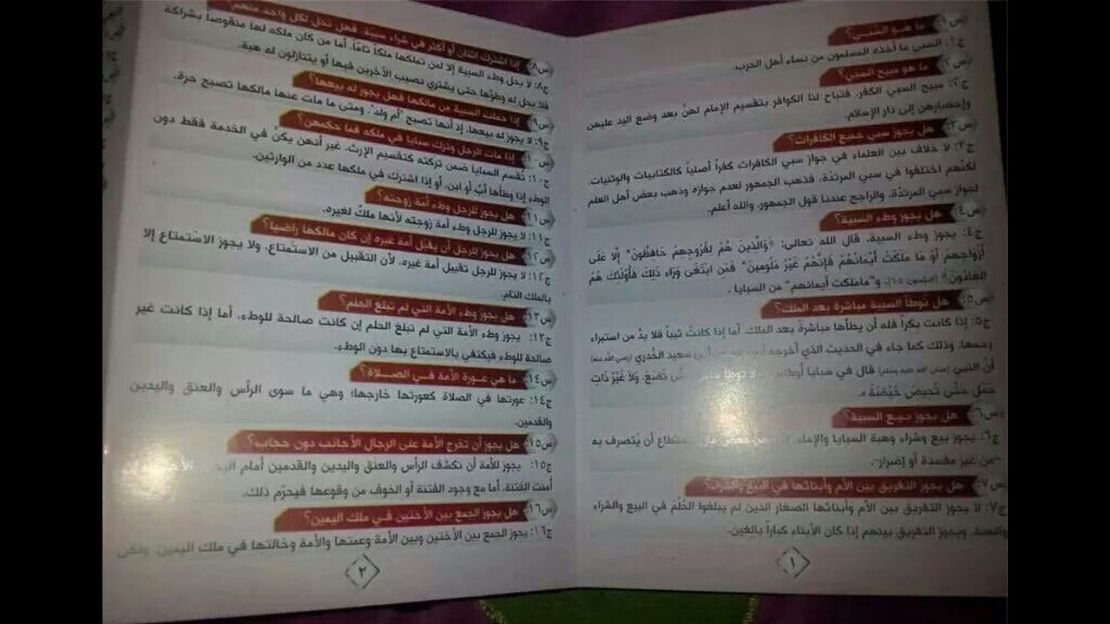 س١: ما هو السَّبي؟
ج١: السَّبي ما أخذه المسلمون من نساء أهل الحرب.
س٢: ما هو مبيح السبي؟
ج٢: مبيح السبي الكفر، فتباح لنا الكوافر بتقسيم الإمام لهنَّ بعد وضع اليد عليهن
وإحضارهن إلى دار الإسلام.
س٣: هل يجوز سبي جميع الكافرات؟
ج٣: لا خلاف بين العلماء في جواز سبي الكافرات كفراً أصلياً كالكتابيات والوثنيات،
لكنَّهم اختلفوا في سبي المرتدّة، فذهب الجمهور لعدم جوازه وذهب بعض أهل العلم
لجواز سبي المرتدّة، والراجح عندنا قول الجمهور، والله أعلم.
س٤: هل يجوز وطء السبية؟
ج٤: يجوز وطء السبية، قال الله تعالى: ﴿وَالَّذِينَ هُمْ لِفُرُوجِهِمْ حَافِظُونَ * إِلَّا عَلَى
أَزْوَاجِهِمْ أَوْ مَا مَلَكَتْ أَيْمَانُهُمْ فَإِنَّهُمْ غَيْرُ مَلُومِينَ * فَمَنِ ابْتَغَى وَرَاءَ ذَلِكَ فَأُولَئِكَ هُمُ
العَادُونَ﴾، و"ماملكت أيمانهم" من السبايا.
س٥: هل توطأ السبية مباشرة بعد الملك؟
ج٥: إذا كانت بكراً فله أن يطأها مباشرة بعد الملك، أما إذا كانت ثيباً فلا بدَّ من استبراء
رحمها، وذلك كما جاء في الحديث الذي أخرجه سعيد الخُدري (رضي الله عنه)
أنَّ النبي (صلى الله عليه وسلم) قال في سبايا أوطاس: لا توطأ تضع، وَلَا غَيْرُ ذَاتِ
حَمْلٍ حَتَّى تَحِيضَ حَيْضَةً».
س٦: هل يجوز بيع السبية؟
ج٦: يجوز بيع وشراء وهبة السبايا والإماء، أن يُتصرف به
من غير مفسدة أو إضرار.
س٧: هل يجوز التفريق بين الأم وأبنائها في البيع والشراء؟
ج٧: لا يجوز التفريق بين الأم وأبنائها الصغار الذين لم يبلغوا الحُلُم في البيع والشراء
والهبة، ويجوز التفريق بينهم إذا كان الأبناء كباراً بالغين.
١
س٨: إذا اشترك اثنان أو أكثر في شراء سبية، فهل تحل لكل واحد منهم؟
ج٨: لا يحل وطء السبية إلا لمن تملكها ملكاً تاماً، أما من كان ملكه لها منقوصاً بشراكة
فلا يحل له وطؤها حتى يشتري نصيب الآخرين فيها أو يتنازلون له هبة.
س٩: إذا حملت السبية من مالكها فهل يجوز له بيعها؟
ج٩: لا يجوز له بيعها، إذ أنها تصبح "أم ولد". ومتى ما مات عنها مالكها تصبح حرة.
س١٠: إذا مات الرجل وترك سبايا في ملكه فما حكمهن؟
ج١٠: تُقسم السبايا ضمن تركته كتقسيم الإرث، غير أنهن يكنَّ في الخدمة فقط دون
الوطء إذا وطأها أبٌ أو ابن، أو إذا اشترك في ملكها عدد من الوارثين.
س١١: هل يجوز للرجل وطء أمة زوجته؟
ج١١: لا يجوز للرجل وطء أمة زوجته لأنها ملكٌ لغيره.
س١٢: هل يجوز للرجل أن يقبّل أمة غيره إن كان مالكها راضياً؟
ج١٢: لا يجوز للرجل تقبيل أمة غيره، لأن التقبيل من الاستمتاع، ولا يجوز الاستمتاع إلا
بالملك التام.
س١٣: هل يجوز وطء الأمة التي لم تبلغ الحلم؟
ج١٣: يجوز وطء الأمة التي لم تبلغ الحلم إن كانت صالحة للوطء، أما إذا كانت غير
صالحة للوطء فيكتفي بالاستمتاع بها دون الوطء.
س١٤: ما هي عورة الأمة في الصلاة؟
ج١٤: عورتها في الصلاة كعورتها خارجها؛ وهي ما سوى الرأس والعنق واليدين
والقدمين.
س١٥: هل يجوز أن تخرج الأمة على الرجال الأجانب دون حجاب؟
ج١٥: يجوز للأمة أن تكشف الرأس والعنق واليدين والقدمين أمام
أمنت الفتنة، أما مع وجود الفتنة أو الخوف من وقوعها فيحرّم ذلك.
س١٦: هل يجوز الجمع بين الأختين في ملك اليمين؟
ج١٦: يجوز الجمع بين الأختين وبين الأمة وعمتها والأمة وخالتها في ملك اليمين، ولكن
٢